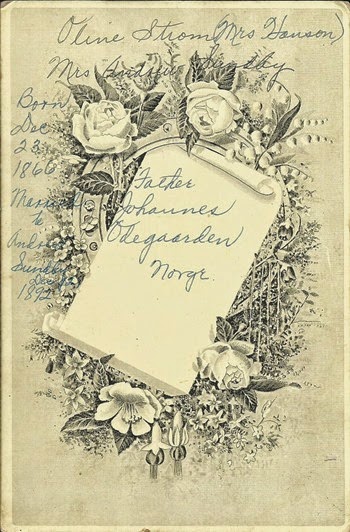 Oline Strom (Mrs Hanson)
Mrs Andrew Sundby
Born
Dec
23
1866
Married
to
Andrew
Sundby
Dec
1892
Father
Johannes
Odegaarden
Norge.